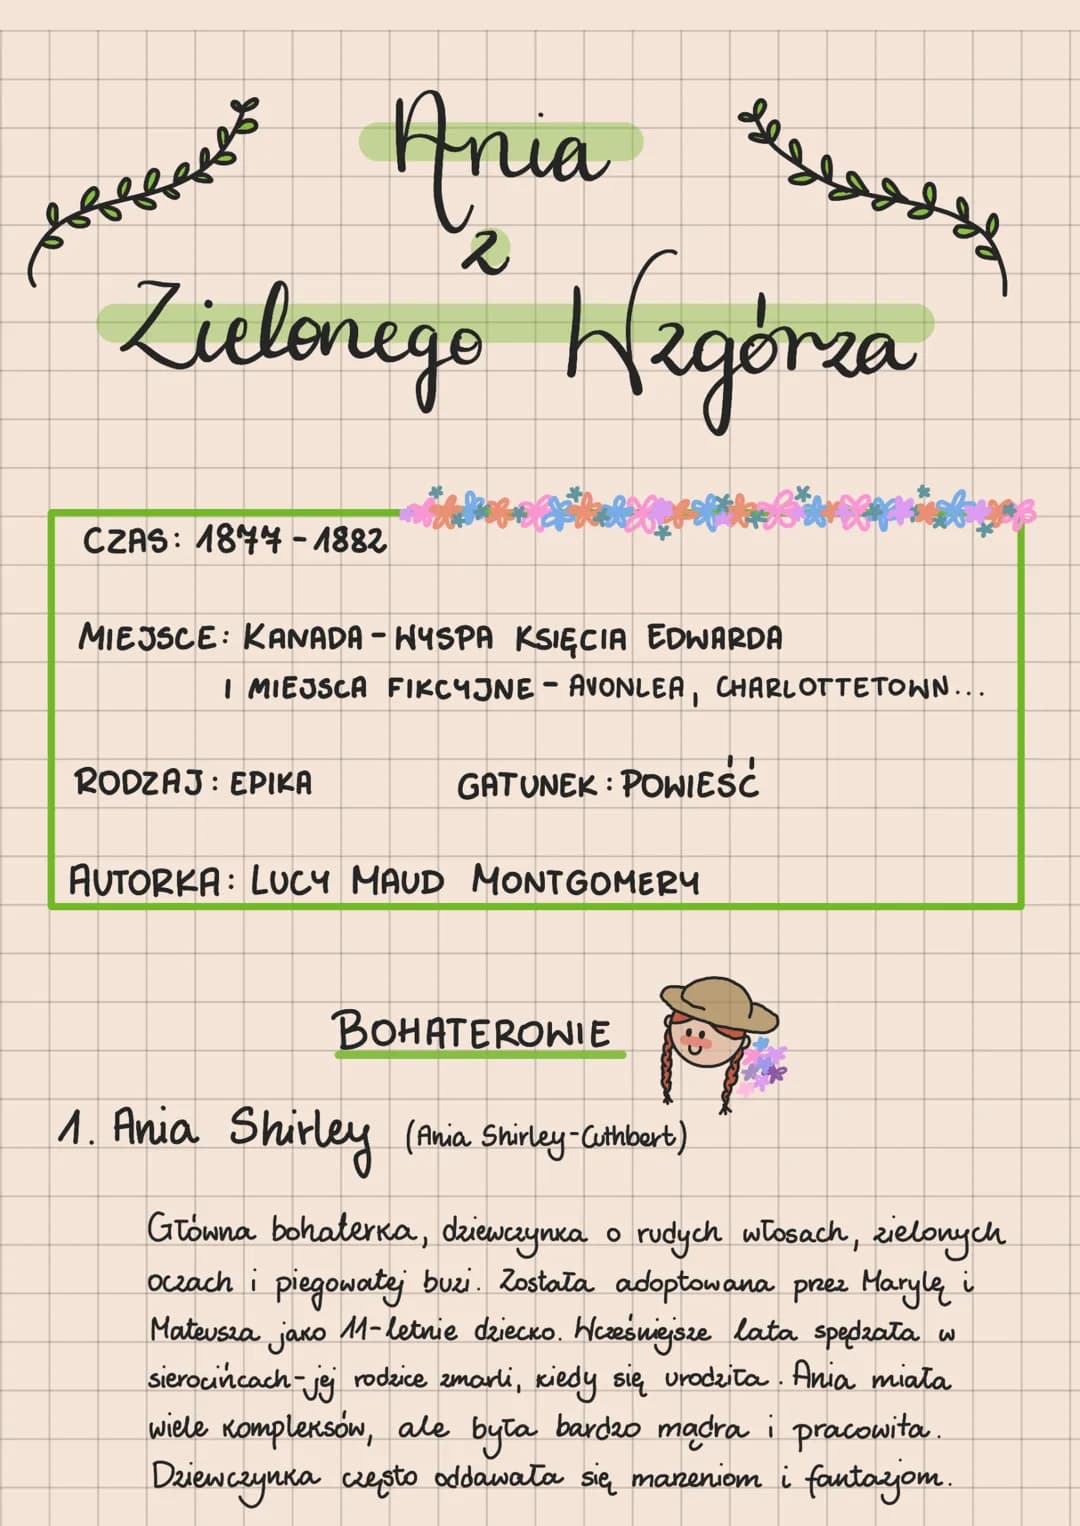 Ania
z
Zielonego Wzgórza
CZAS: 1877-1882
MIEJSCE: KANADA - WYSPA KSIĘCIA EDWARDA
I MIEJSCA FIKCYJNE - AVONLEA, CHARLOTTETOWN...
RODZAJ: EPIKA GATUNEK: POWIEŚĆ
AUTORKA: LUCY MAUD MONTGOMERY
BOHATEROWIE
1. Ania Shirley (Ania Shirley-Cuthbert)
Główna bohaterka, dziewczynka o rudych włosach, zielonych
oczach i piegowatej buzi. Została adoptowana przez Marylę i
Mateusza jako 11-letnie dziecko. Wcześniejsze lata spędzała w
sierocińcach - jej rodzice zmarli, kiedy się urodziła. Ania miała
wiele kompleksów, ale była bardzo mądra i pracowita.
Dziewczynka często oddawała się marzeniom i fantazjom.